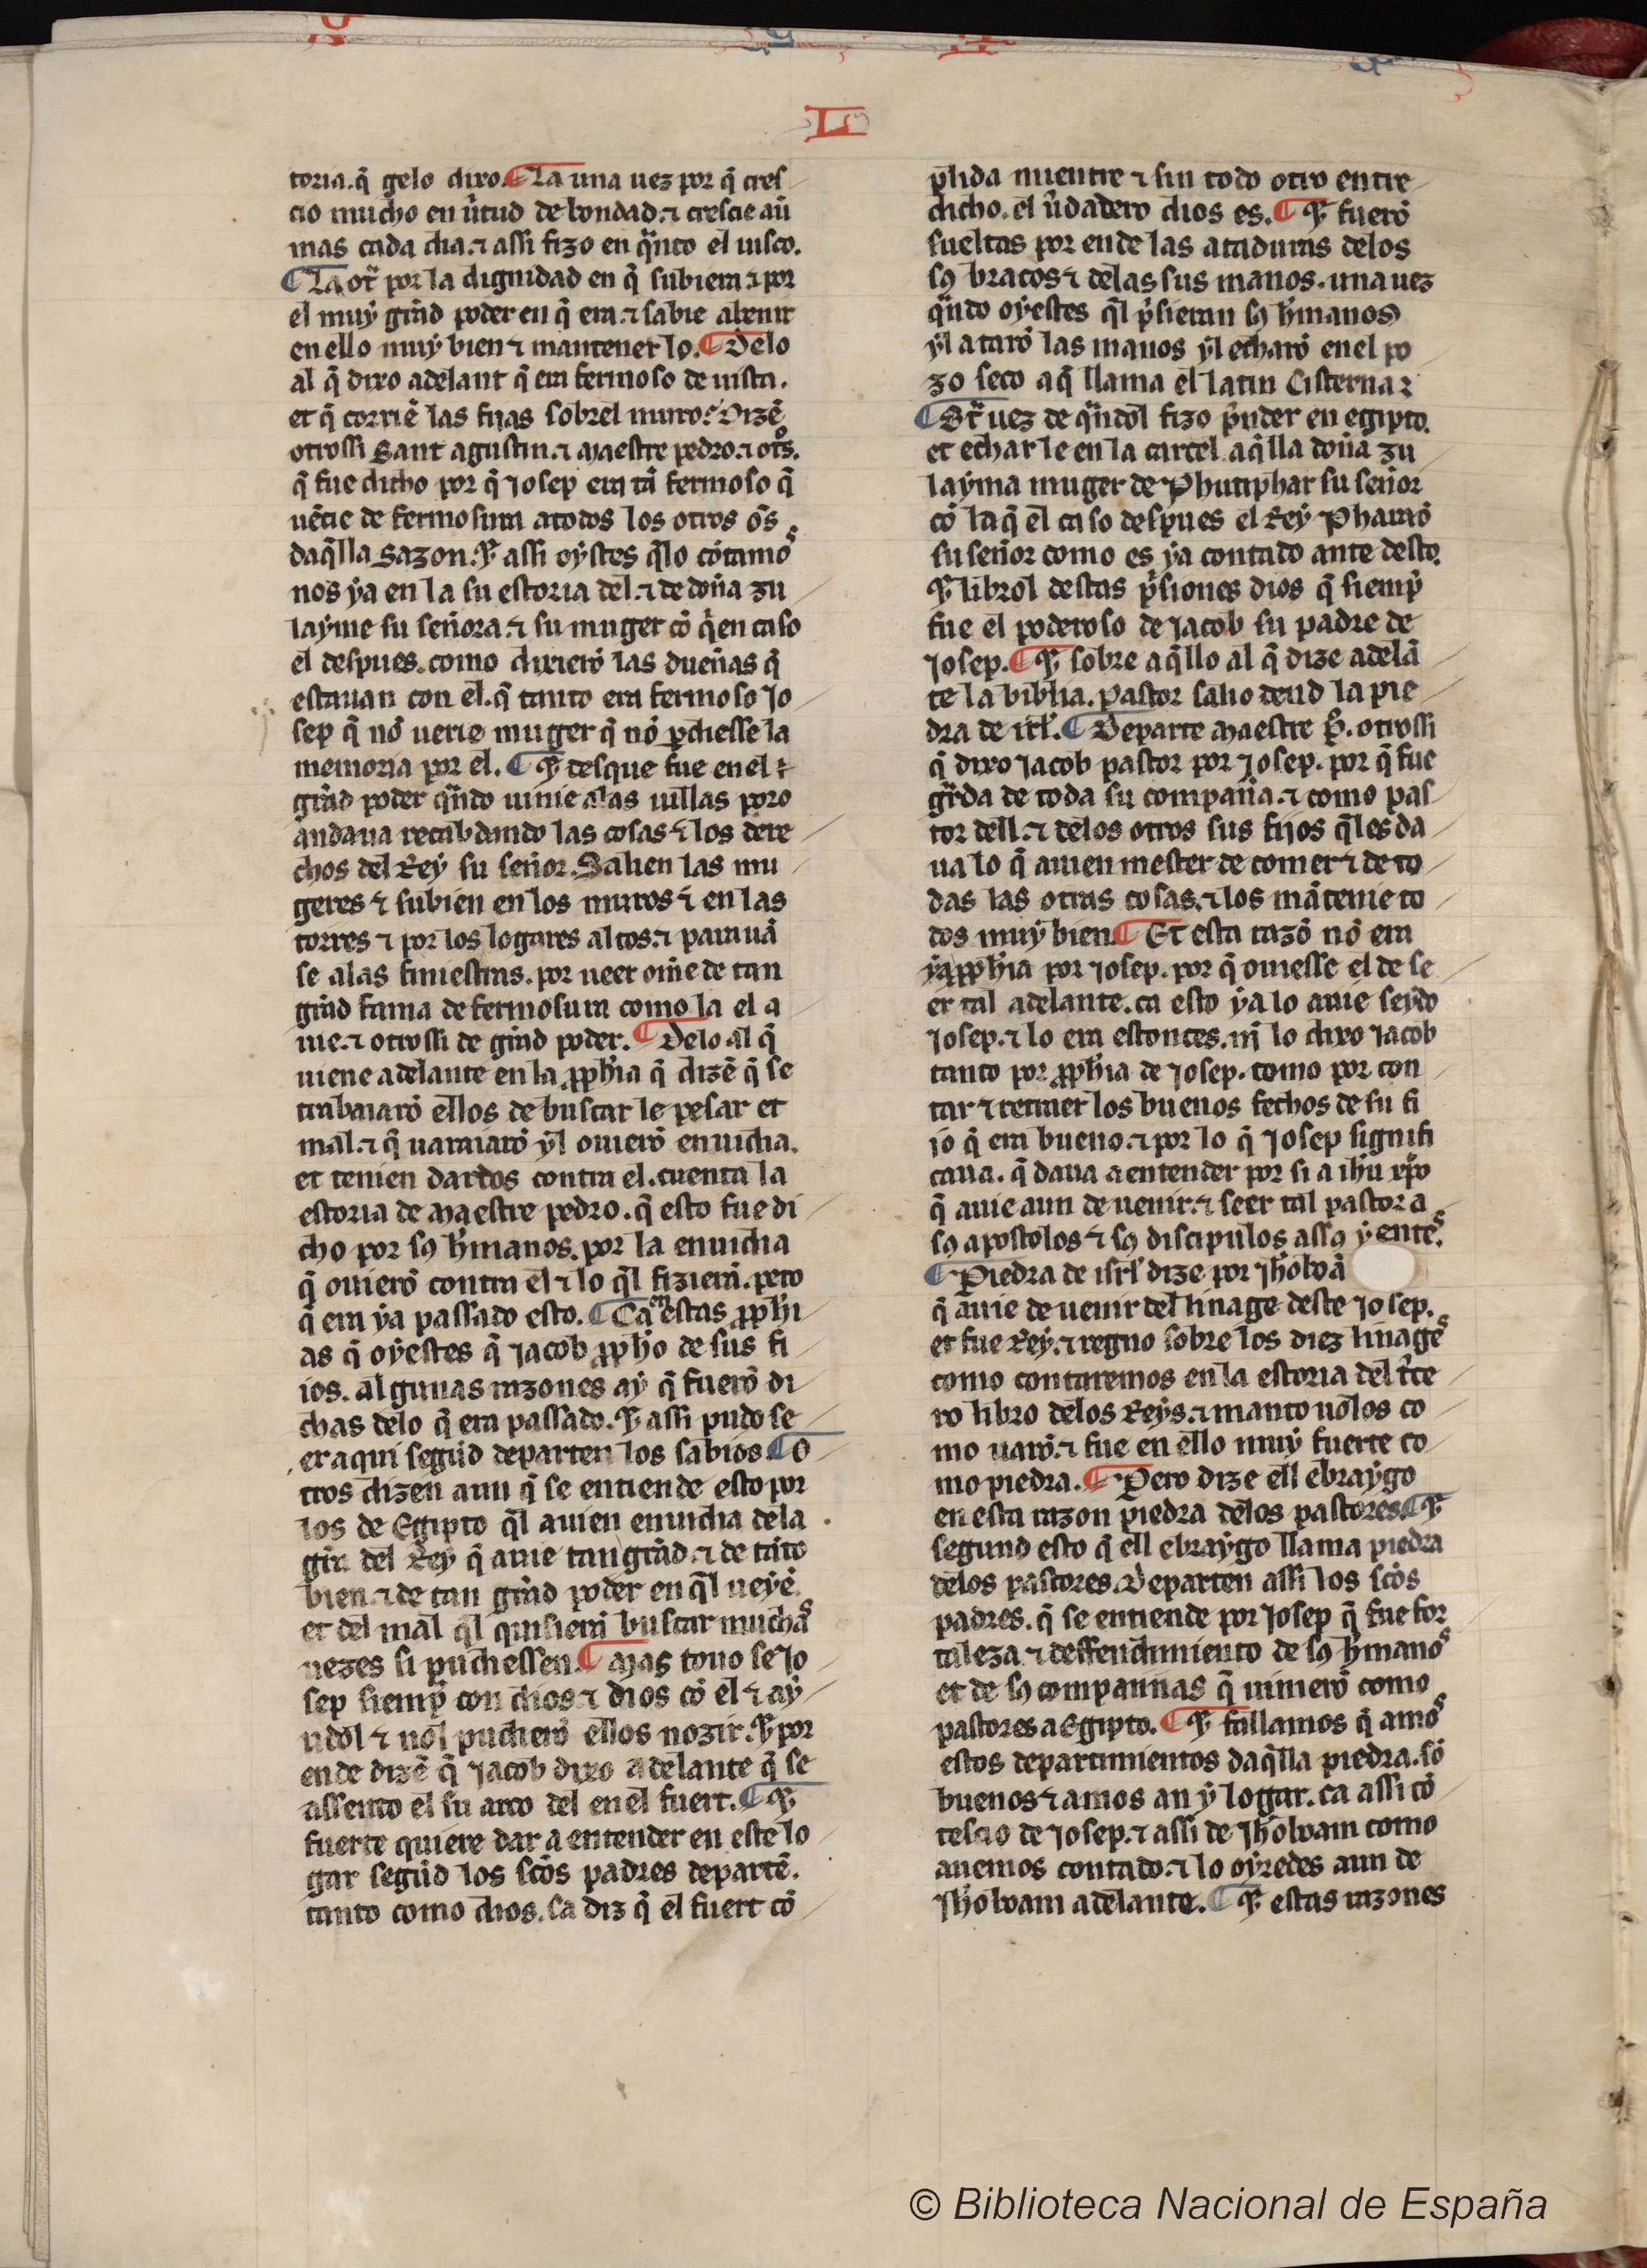 L
toria. q̃ gelo dixo. ¶ La una uez por q̃ cres
cio mucho en u̾tud de bondad. ⁊ crescie aũ
mas cada dia. ⁊ assi fizo en quãto el uisco.
¶ La ot̃ por la dignidad en q̃ subiera ⁊ por
el muy grãd poder en q̃ era. ⁊ sabie abenir
en ello muy bien ⁊ mantener lo. ¶ Delo
al q̃ dixo adelant q̃ era fermoso de uista.
et q̃ corriẽ las fijas sobrel muro. Dizẽ
otrossi Sant agustin. ⁊ Maestre pedro. ⁊ ot̃s.
q̃ fue dicho por q̃ Josep era tã fermoso q̃
uẽcie de fermosura atodos los otros oẽs
daq̃lla sazon. Et assi oystes q̃lo cõtamos
nos ya en la su estoria del. ⁊ de doña zu
layme su señora. ⁊ su muger cõ q̃en caso
el despues. como dixierõ las dueñas q̃
estauan con el. q̃ tanto era fermoso Jo
sep q̃ nõ uerie muger q̃ nõ p̱diesse la
memoria por el. ¶ Et desque fue en el ⁊
grãd poder q̃ndo uinie alas uillas poro
andaua recabdando las cosas ⁊ los dere
chos del Rey su señor. Salien las mu
geres ⁊ subien en los muros ⁊ en las
torres ⁊ por los logares altos. ⁊ parauã
se alas finiestras. por ueer om̃e de tan
grãd fama de fermosura como la el a
uie. ⁊ otrossi de grãd poder. ¶ Delo al q̃
uiene adelante en la p̱ph̃ia q̃ dizẽ q̃ se
trabaiarõ ellos de buscar le pesar et
mal. ⁊ q̃ uaraiarõ yl ouierõ enuidia.
et tenien dardos contra el. cuenta la
estoria de Maestre pedro. q̃ esto fue di
cho por sus h̾manos. por la enuidia
q̃ ouierõ contra el ⁊ lo q̃l fizierã. pero
q̃ era ya passado esto. ¶ Ca en estas p̱ph̃i
as q̃ oyestes q̃ Jacob p̱ph̃o de sus fi
ios. algunas razones ay q̃ fuerõ di
chas delo q̃ era passado. Et assi pudo se
er aqui segũd departen los sabios. ¶ O
tros dizen aun q̃ se entiende esto por
los de Egipto q̃l auien enuidia dela
grã del Rey q̃ auie tan grãd. ⁊ de tãto
bien. ⁊ de tan grãd poder en q̃l ueyẽ.
et del mal q̃l quisierã buscar muchas
uezes si pudiessen. ¶ Mas touo se Jo
sep siemp̃ con dios ⁊ dios cõ el ⁊ ay
udol ⁊ nol pudierõ ellos nozir. Et por
ende dizẽ q̃ Jacob dixo adelante q̃ se
assento el su arco del en el fuert. ¶ Et
fuerte quiere dar a entender en este lo
gar segũd los sc̃os padres departẽ.
tanto como dios. Ca diz q̃ el fuert cõ
p̱lida mientre ⁊ sin todo otro entre
dicho. el u̾dadero dios es. ¶ Et fuerõ
sueltas por ende las ataduras delos
sus braços ⁊ delas sus manos. una uez
q̃ndo oyestes q̃l p̃sieran sus h̾manos
yl atarõ las manos yl echarõ en el po
zo seco aq̃ llama el latin Cisterna ⁊
¶ Ot̃ uez de q̃ndol fizo p̃nder en egipto.
et echar le en la carcel aq̃lla doña zu
layma muger de Phutiphar su señor
cõ la q̃ el caso despues el Rey Pharaõ
su señor como es ya contado ante desto.
Et librol destas p̃siones dios q̃ siemp̃
fue el poderoso de Jacob su padre de
Josep. ¶ Et sobre aq̃llo al q̃ dize adelã
te la biblia. Pastor salio dend la pie
dra de irl̃. ¶ Departe Maestre p̃. otrossi
q̃ dixo Jacob pastor por Josep. por q̃ fue
gr̃da de toda su compaña. ⁊ como pas
tor dell. ⁊ delos otros sus fijos q̃les da
ua lo q̃ auien mester de comer ⁊ de to
das las otras cosas. ⁊ los mãtenie to
dos muy bien. ¶ Et esta razõ nõ era
ya p̱ph̃ia por Josep. por q̃ ouiesse el de se
er tal adelante. ca esto ya lo auie seydo
Josep. ⁊ lo era estonces. nj̃ lo dixo Jacob
tanto por p̱ph̃ia de Josep. como por con
tar ⁊ retraer los buenos fechos de su fi
jo q̃ era bueno. ⁊ por lo q̃ Josep signifi
caua. q̃ daua a entender por si a ih̃u xp̃o
q̃ auie aun de uenir. ⁊ seer tal pastor a
sus apostolos ⁊ sus discipulos assus yentes.
¶ Piedra de isrl̃ dize por Jh̃oboã
q̃ auie de uenir del linage deste Josep.
et fue Rey. ⁊ regno sobre los diez linages
como contaremos en la estoria del t̾ce
ro libro delos Reys. ⁊ mantouolos co
mo uarõ. ⁊ fue en ello muy fuerte co
mo piedra. ¶ Pero dize ell ebraygo
en esta razon piedra delos pastores. ¶ Et
segund esto q̃ ell ebraygo llama piedra
delos pastores. Departen assi los sc̃os
padres. q̃ se entiende por Josep q̃ fue for
taleza ⁊ deffendimiento de sus h̾manos
et de sus compannas q̃ uinierõ como
pastores a Egipto. ¶ Et fallamos q̃ amos
estos departimientos daq̃lla piedra. sõ
buenos ⁊ amos an y logar. ca assi cõ
tescio de Josep. ⁊ assi de Jh̃oboam como
auemos contado. ⁊ lo oyredes aun de
Jh̃oboam adelante. ¶ Et estas razones
© Biblioteca Nacional de España